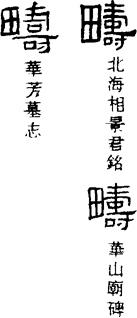 疇
北海相景君銘
疇
華山廟碑
疇
華芳墓志